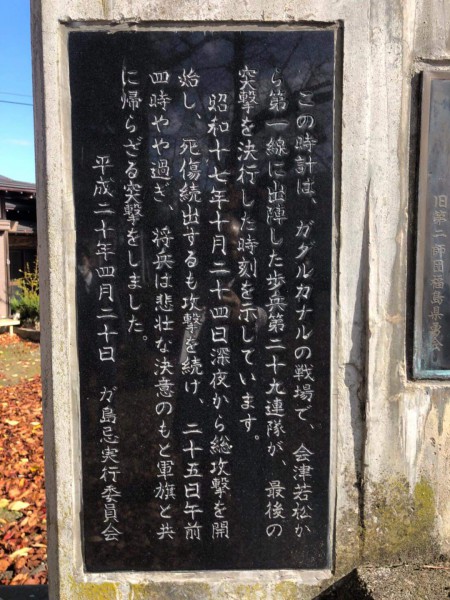 この時計は、ガダルカナルの戦場で、会津若松か
ら第一線に出陣した歩兵第二十九連隊が、最後の
突撃を決行した時刻を示しています。
昭和十七年十月二十四日深夜から総攻撃を開
始し、死傷続出するも攻撃を続け、二十五日午前
四時やや過ぎ、将兵は悲壮な決意のもと軍旗と共
に帰らざる突撃をしました。
平成二十年四月二十日 ガ島忌実行委員会
旧第二師団福島県勇会